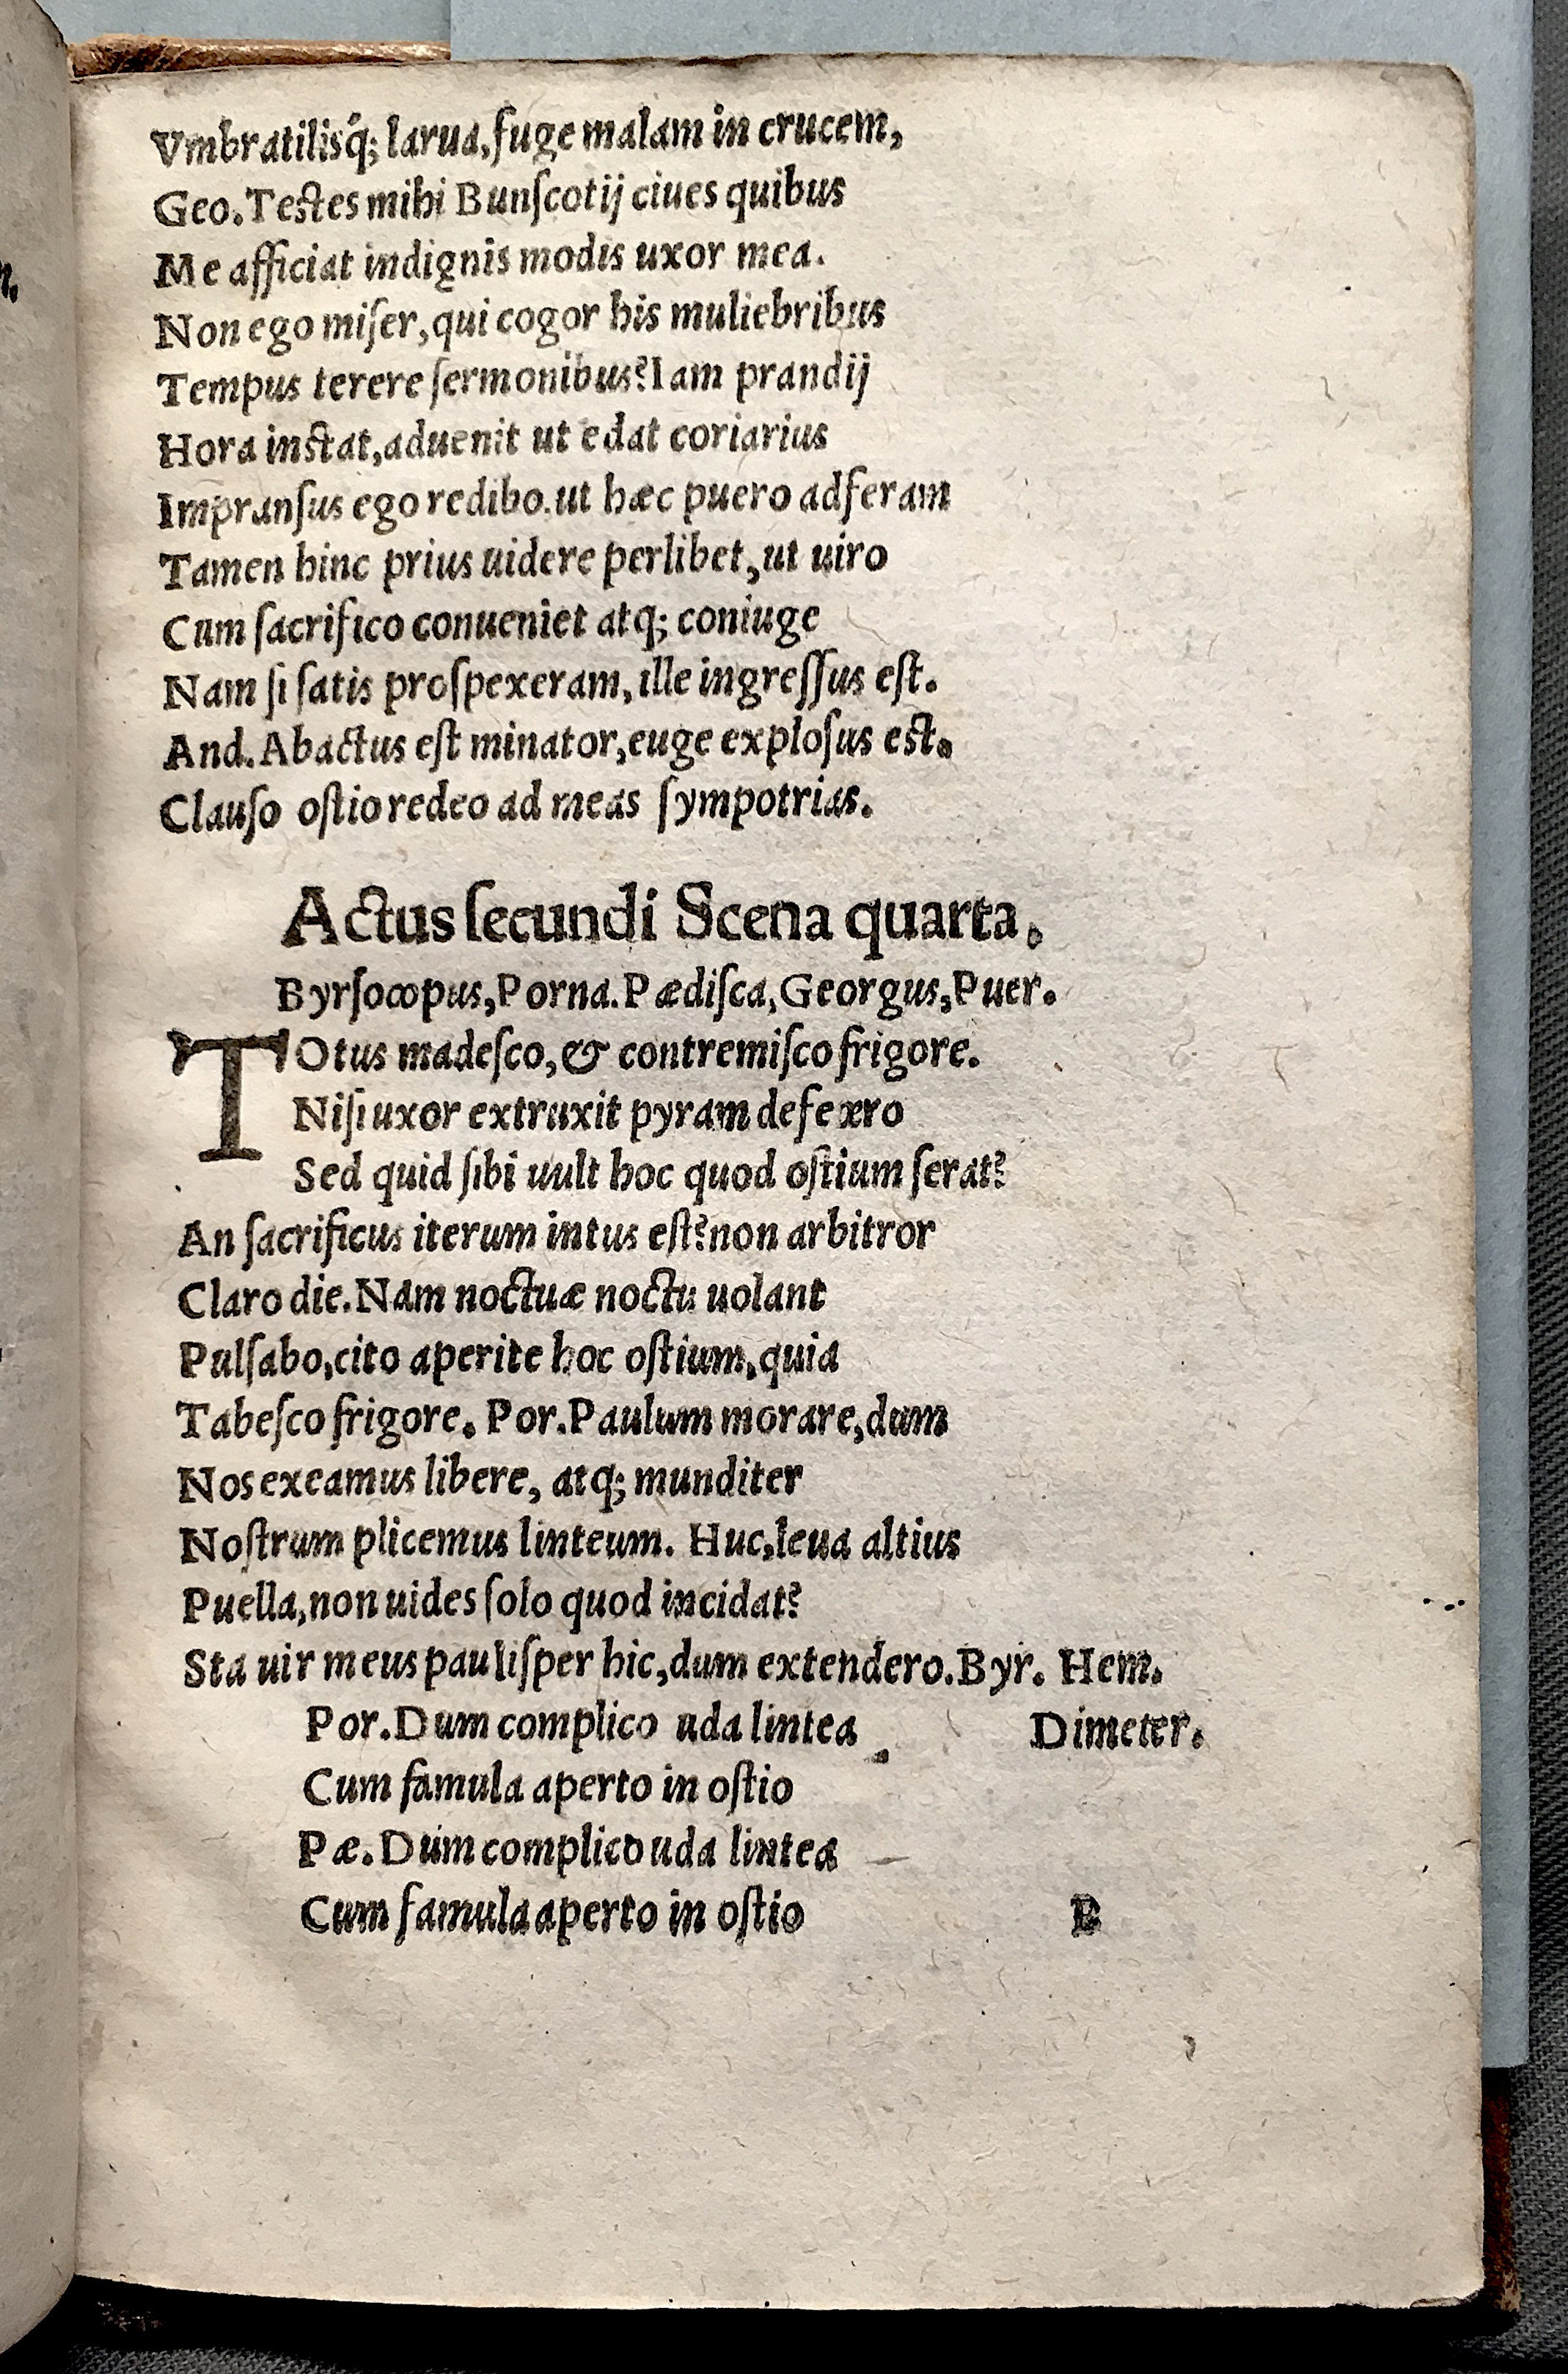 Vmbratilisq́; larua, fuge malam in crucem,
Geo. Testes mihi Bunſcotij ciues quibus
Me afficiat indignis modis uxor mea.
Non ego miſer, qui cogor his muliebribus
Tempus terere ſermonibus? Iam prandij
Hora instat, aduenit ut edat coriarius
Impranſus ego redibo. ut hæc puero adferam
Tamen hinc prius uidere perlibet, ut uiro
Cum ſacrifico conueniet atq; coniuge
Nam ſi ſatis proſpexeram, ille ingreſſus eſt.
And. Abactus eſt minator, euge exploſus est.
Clauſo oſtio redeo ad meas ſympotrias.
Actus ſecundi Scena quarta.
Byrſocopus, Porna. Pædiſca, Georgus, Puer.
TOtus madeſco, & contremiſco frigore.
Niſi uxor extruxit pyram defexero
Sed quid ſibi uult hoc quod oſtium ſerat?
An ſacrificus iterum intus eſt? non arbitror
Claro die. Nam noctuæ noctu uolant
Pulſabo, cito aperite hoc oſtium, quia
Tabeſco frigore. Por. Paulum morare, dum
Nos exeamus libere, atq; munditer
Noſtrum plicemus linteum. Huc, leua altius
Puella, non uides ſolo quod incidat?
Sta uir meus pauliſper hic, dum extendero. Byr. Hem.
Por. Dum complico uda lintea Dimeter.
Cum famula aperto in oſtio
Pæ. Dum complico uda lintea
Cum famula aperto in oſtio B